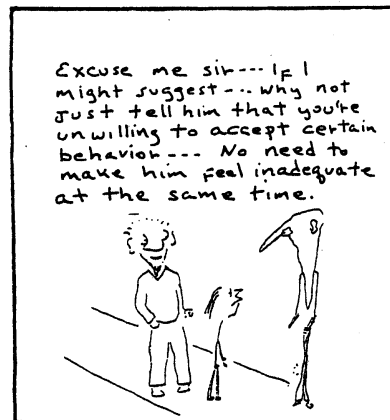 Excuse me sir--- If I
might suggest--- why not
just tell him that you're
unwilling to accept certain
behavior--- No need to
make him feel inadequate
at the same time.